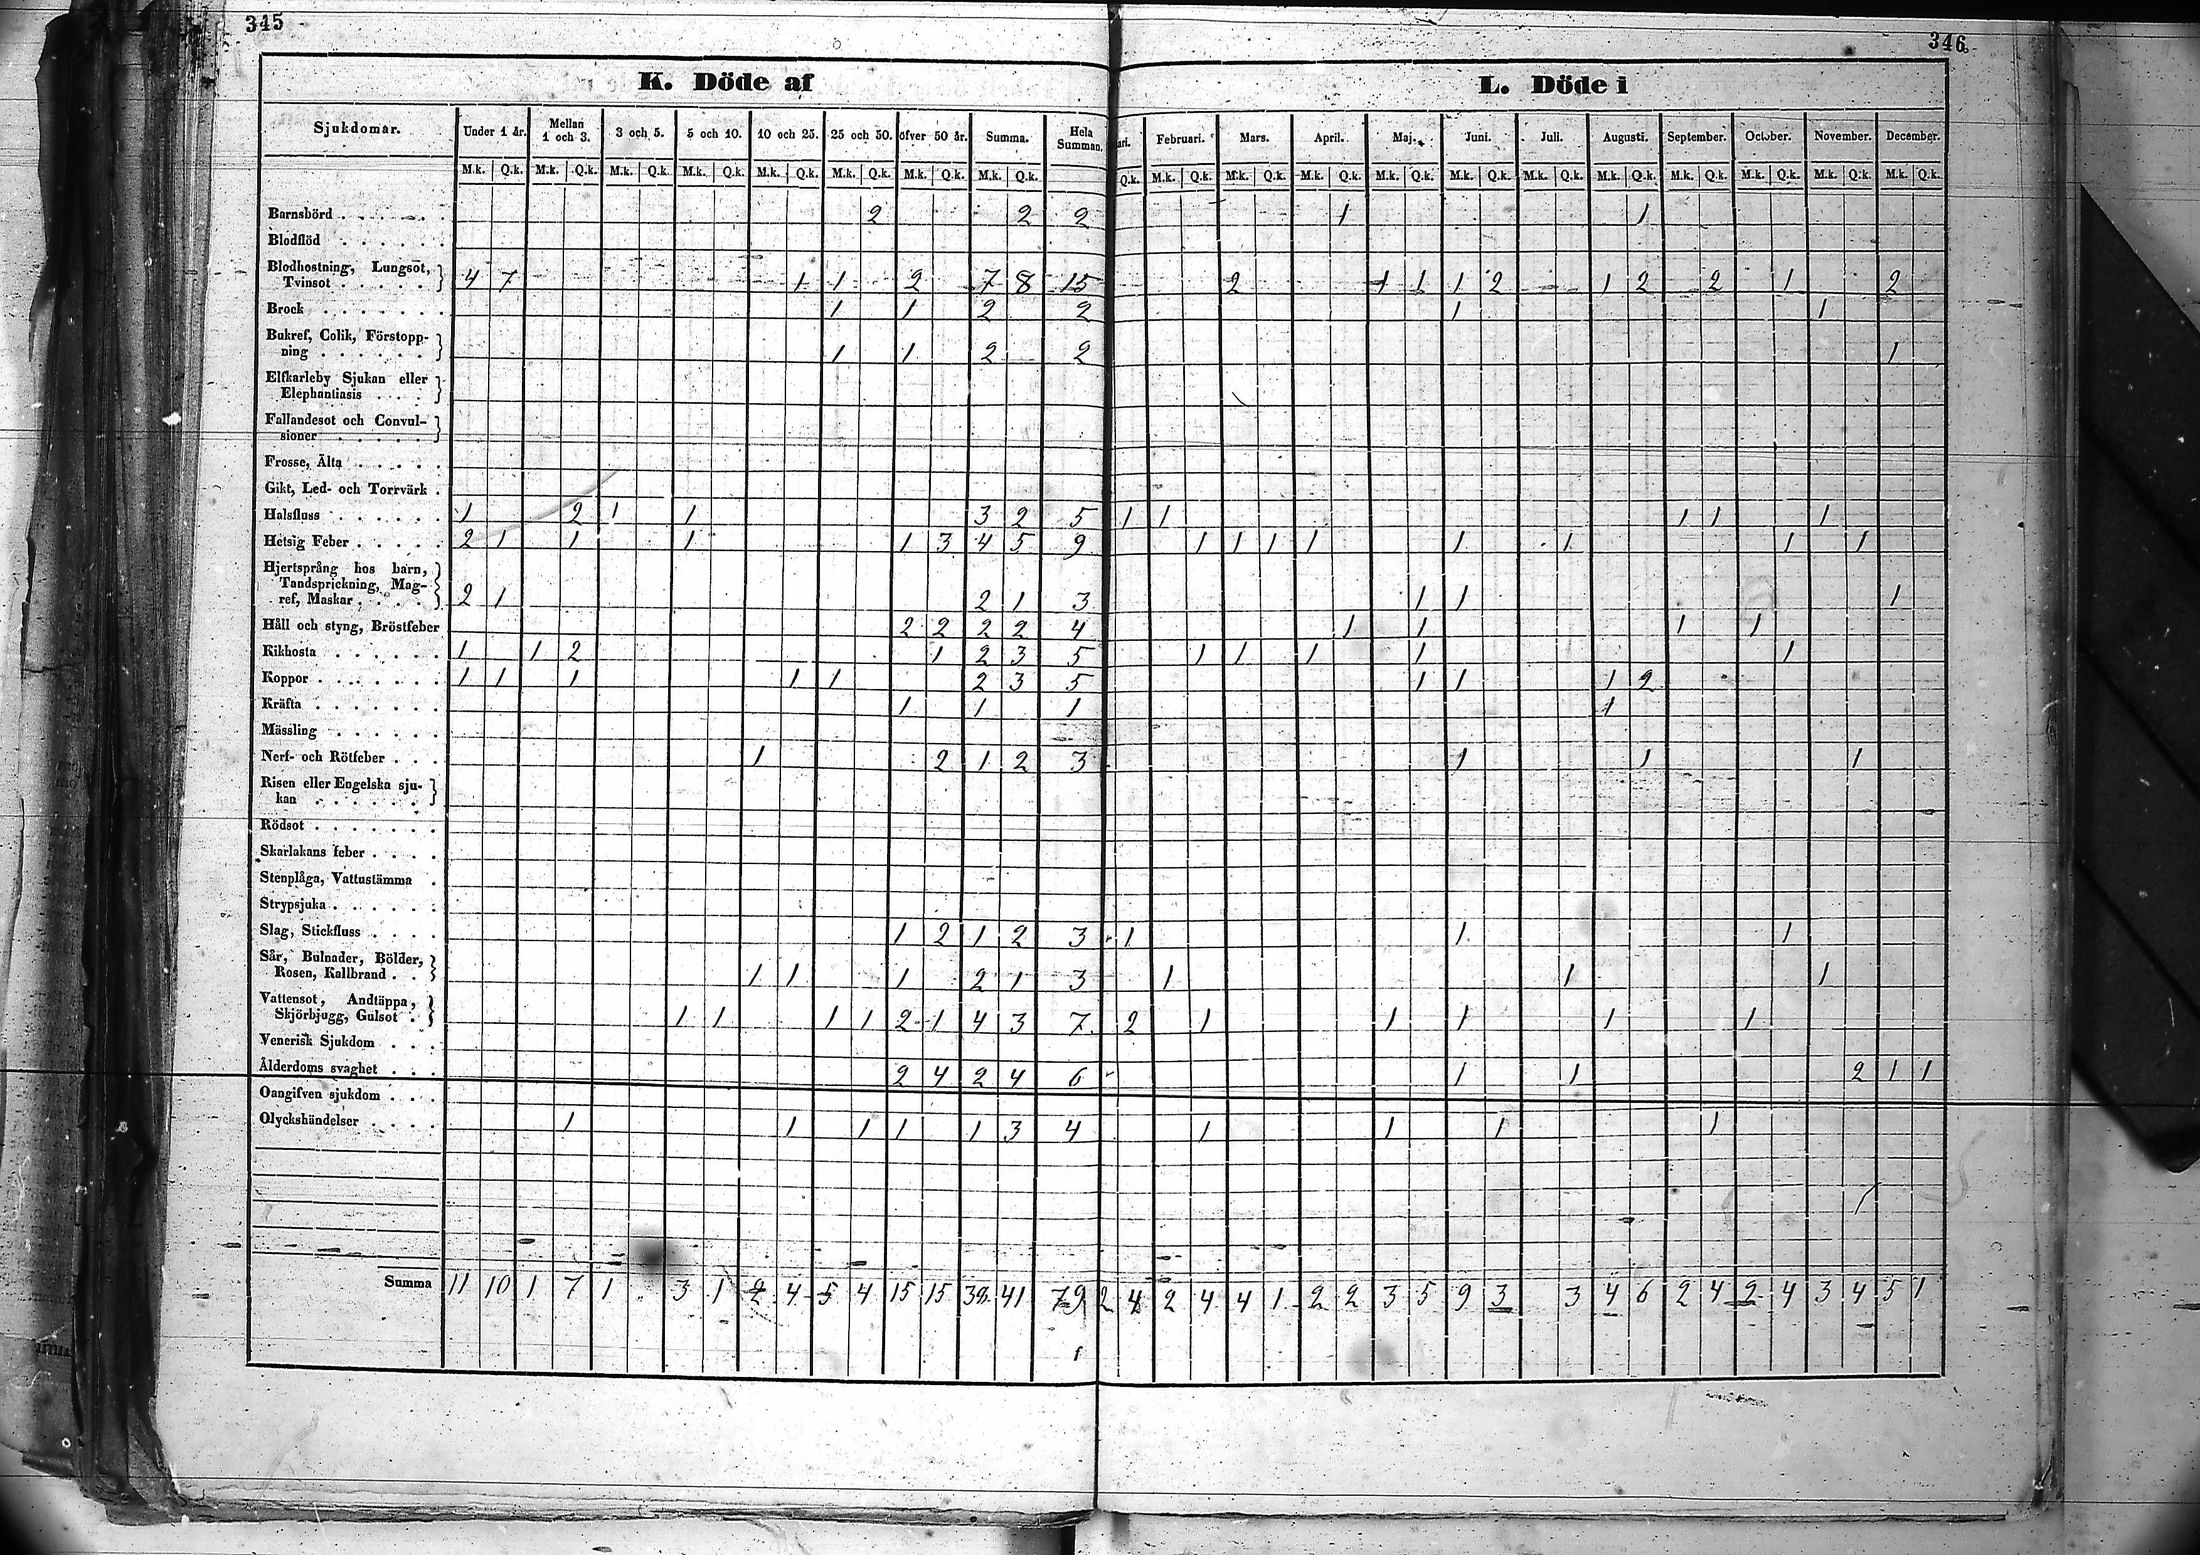 345
346
K. Döde af
L. Döde i
Sjukdomar. Under 1 år. Mellan 1 och 3. 3 och 5. 5 och 10. 10 och 25. 25 och 50. öfver 50 år. Summa. Hela Summan. ari. Februari. Mars. April. Maj. Juni. Juli. Augusti. September. October. November. December.
M.k. Q.k. M.k. Q.k. M.k. Q.k. M.k. Q.k. M.k. Q.k. M.k. Q.k. M.k. Q.k. M.k. Q.k. Q.k. M.k. Q.k. M.k. Q.k. M.k. Q.k. M.k. Q.k. M.k. Q.k. M.k. Q.k. M.k. Q.k. M.k. Q.k. M.k. Q.k. M.k. Q.k. M.k. Q.k.
Barnsbörd 2 2 2 1 1
Blodflöd
Blodhostning, Lungsot,
Tvinsot 4 7 1 1 2 7 8 15 2 1 1 1 2 1 2 2 1 2
Brock 1 1 2 2 1 1
Bukref, Colik, Förstopp-
ning 1 1 2 2 1
Elfkarleby Sjukan eller
Elephantiasis
Fallandesot och Convul-
sioner
Frosse, Älta
Gikt, Led- och Torrvärk
Halsfluss 1 2 1 1 3 2 5 1 1 1 1 1
Hetsig Feber 2 1 1 1 1 3 4 5 9 1 1 1 1 1 1 1 1
Hjertsprång hos barn,
Tandsprickning, Mag-
ref, Maskar 2 1 2 1 3 1 1 1
Håll och styng, Bröstfeber 2 2 2 2 4 1 1 1 1
Kikhosta 1 1 2 1 2 3 5 1 1 1 1 1
Koppor 1 1 1 1 1 2 3 5 1 1 1 2
Kräfta 1 1 1 1
Mässling
Nerf- och Rötfeber 1 2 1 2 3 1 1 1
Risen eller Engelska sju-
kan
Rödsot
Skarlakans feber
Stenplåga, Vattustämma
Strypsjuka
Slag, Stickfluss 1 2 1 2 3 1 1 1
Sår, Bulnader, Bölder,
Rosen, Kallbrand 1 1 1 2 1 3 1 1 1
Vattensot, Andtäppa,
Skjörbjugg, Gulsot 1 1 1 1 2 1 4 3 7 2 1 1 1 1 1
Venerisk Sjukdom
Ålderdoms svaghet 2 4 2 4 6 1 1 2 1 1
Oangifven sjukdom
Olyckshändelser 1 1 1 1 1 3 4 1 1 1 1
Summa 11 10 1 7 1 3 1 2 4 5 4 15 15 38 41 79 2 4 2 4 4 1 2 2 3 5 9 3 3 4 6 2 4 2 4 3 4 5 1